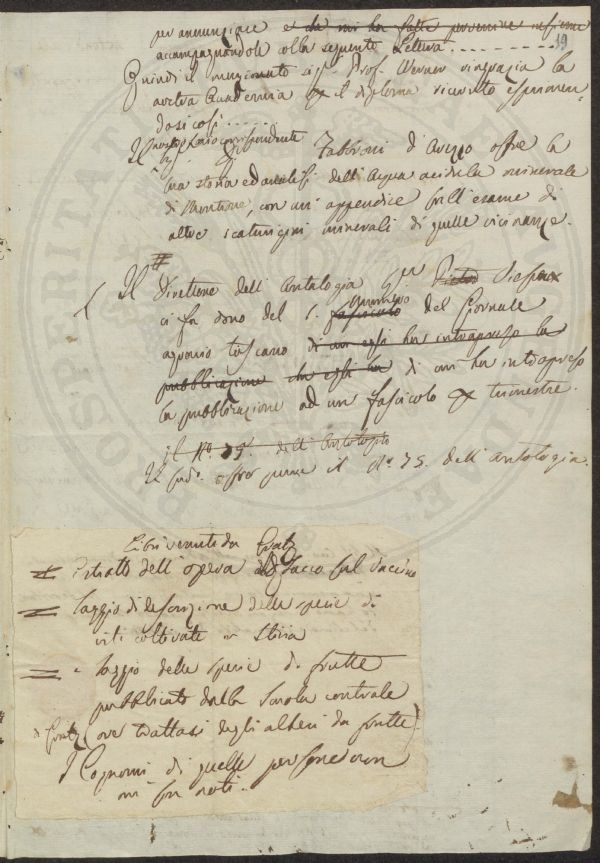 per annunziare e che mi ha fatto pervenire insieme
accompagnandole colla seguente Lettera . . . . . . . .
19
Quindi il menzionato sig. Prof. Werner ringrazia la
nostra Accademia il diploma ricevuto esprimen-
dosi così . . . . . .
Il nostro socio corrispondente
Fabbroni d'Arezzo offre la
sua storia ed analisi dell'Acqua acidula minerale
di Montione, con un' appendice sull'esame di
altre scaturigini minerali di quelle vicinanze.
Il Direttore dell'Antologia Vieusseux
ci fa dono del 1. fascicolo numero del Giornale
agrario toscano di cui egli ha intrapreso la
pubblicazione che egli ha di cui ha intrapreso
la pubblicazione ad un fascicolo trimestre.
il N.° 75. dell'Antologia
Il sud.° offre pure il N.° 75. dell'antologia.
Libri venuti da Gratz
Estratto dell'opera Sacco sul vaccino
Saggio di descrizione delle specie di
viti coltivate in Stiria
Saggio delle specie di frutte
pubblicato dalla Scuola centrale
di Gratz (ove trattasi degli alberi da frutte)
I Cognomi di quelle persone non
mi son noti.
PROSPERITATI